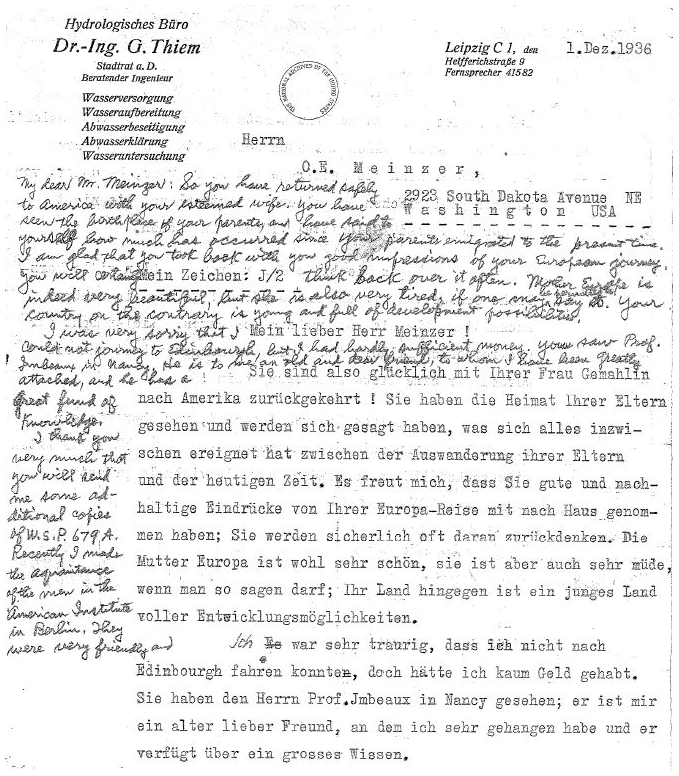 Hydrologisches Büro
Dr.-Ing. G. Thiem
Stadtrat a. D.
Beratender Ingenieur
Wasserversorgung
Wasseraufbereitung
Abwasserbeseitigung
Abwasserklärung
Wasseruntersuchung
Leipzig C 1, den 1.Dez.1936
Helfferichstraße 9
Fernsprecher 41582
THE NATIONAL ARCHIVES OF THE UNITED STATES
Herrn
O.E. Meinzer,
2923 South Dakota Avenue NE
Washington USA
My dear Mr. Meinzer: So you have returned safely
to America with your esteemed wife. You have
seen the birthplace of your parents and have said to
yourself how much has occurred since your parents emigrated to the present time.
I am glad that you took back with you good impressions of your European journey.
You will certainly think back over it often. Mother Europe is
indeed very beautiful, but she is also very tired, if one may say it. Your
country on the contrary is young and full of development possibilities.
I was very sorry that I
could not journey to Edinbourgh but I had hardly sufficient money. You saw Prof.
Imbeaux in Nancy. He is to me an old and dear friend, to whom I have been greatly
attached, and he has a
great fund of
knowledge.
I thank you
very much that
you will send
me some ad-
ditional copies
of W.S.P. 679A.
Recently I made
the aquaintance
of the men in the
American Institute
in Berlin. They
were very friendly and
Mein Zeichen: J/2
Mein lieber Herr Meinzer !
Sie sind also glücklich mit Ihrer Frau Gemahlin
nach Amerika zurückgekehrt ! Sie haben die Heimat Ihrer Eltern
gesehen und werden sich gesagt haben, was sich alles inzwi-
schen ereignet hat zwischen der Auswanderung ihrer Eltern
und der heutigen Zeit. Es freut mich, dass Sie gute und nach-
haltige Eindrücke von Ihrer Europa-Reise mit nach Haus genom-
men haben; Sie werden sicherlich oft daran zurückdenken. Die
Mutter Europa ist wohl sehr schön, sie ist aber auch sehr müde,
wenn man so sagen darf; Ihr Land hingegen ist ein junges Land
voller Entwicklungsmöglichkeiten.
Ich Es war sehr traurig, dass ich nicht nach
Edinbourgh fahren konnten, doch hätte ich kaum Geld gehabt.
Sie haben den Herrn Prof.Jmbeaux in Nancy gesehen; er ist mir
ein alter lieber Freund, an dem ich sehr gehangen habe und er
verfügt über ein grosses Wissen.